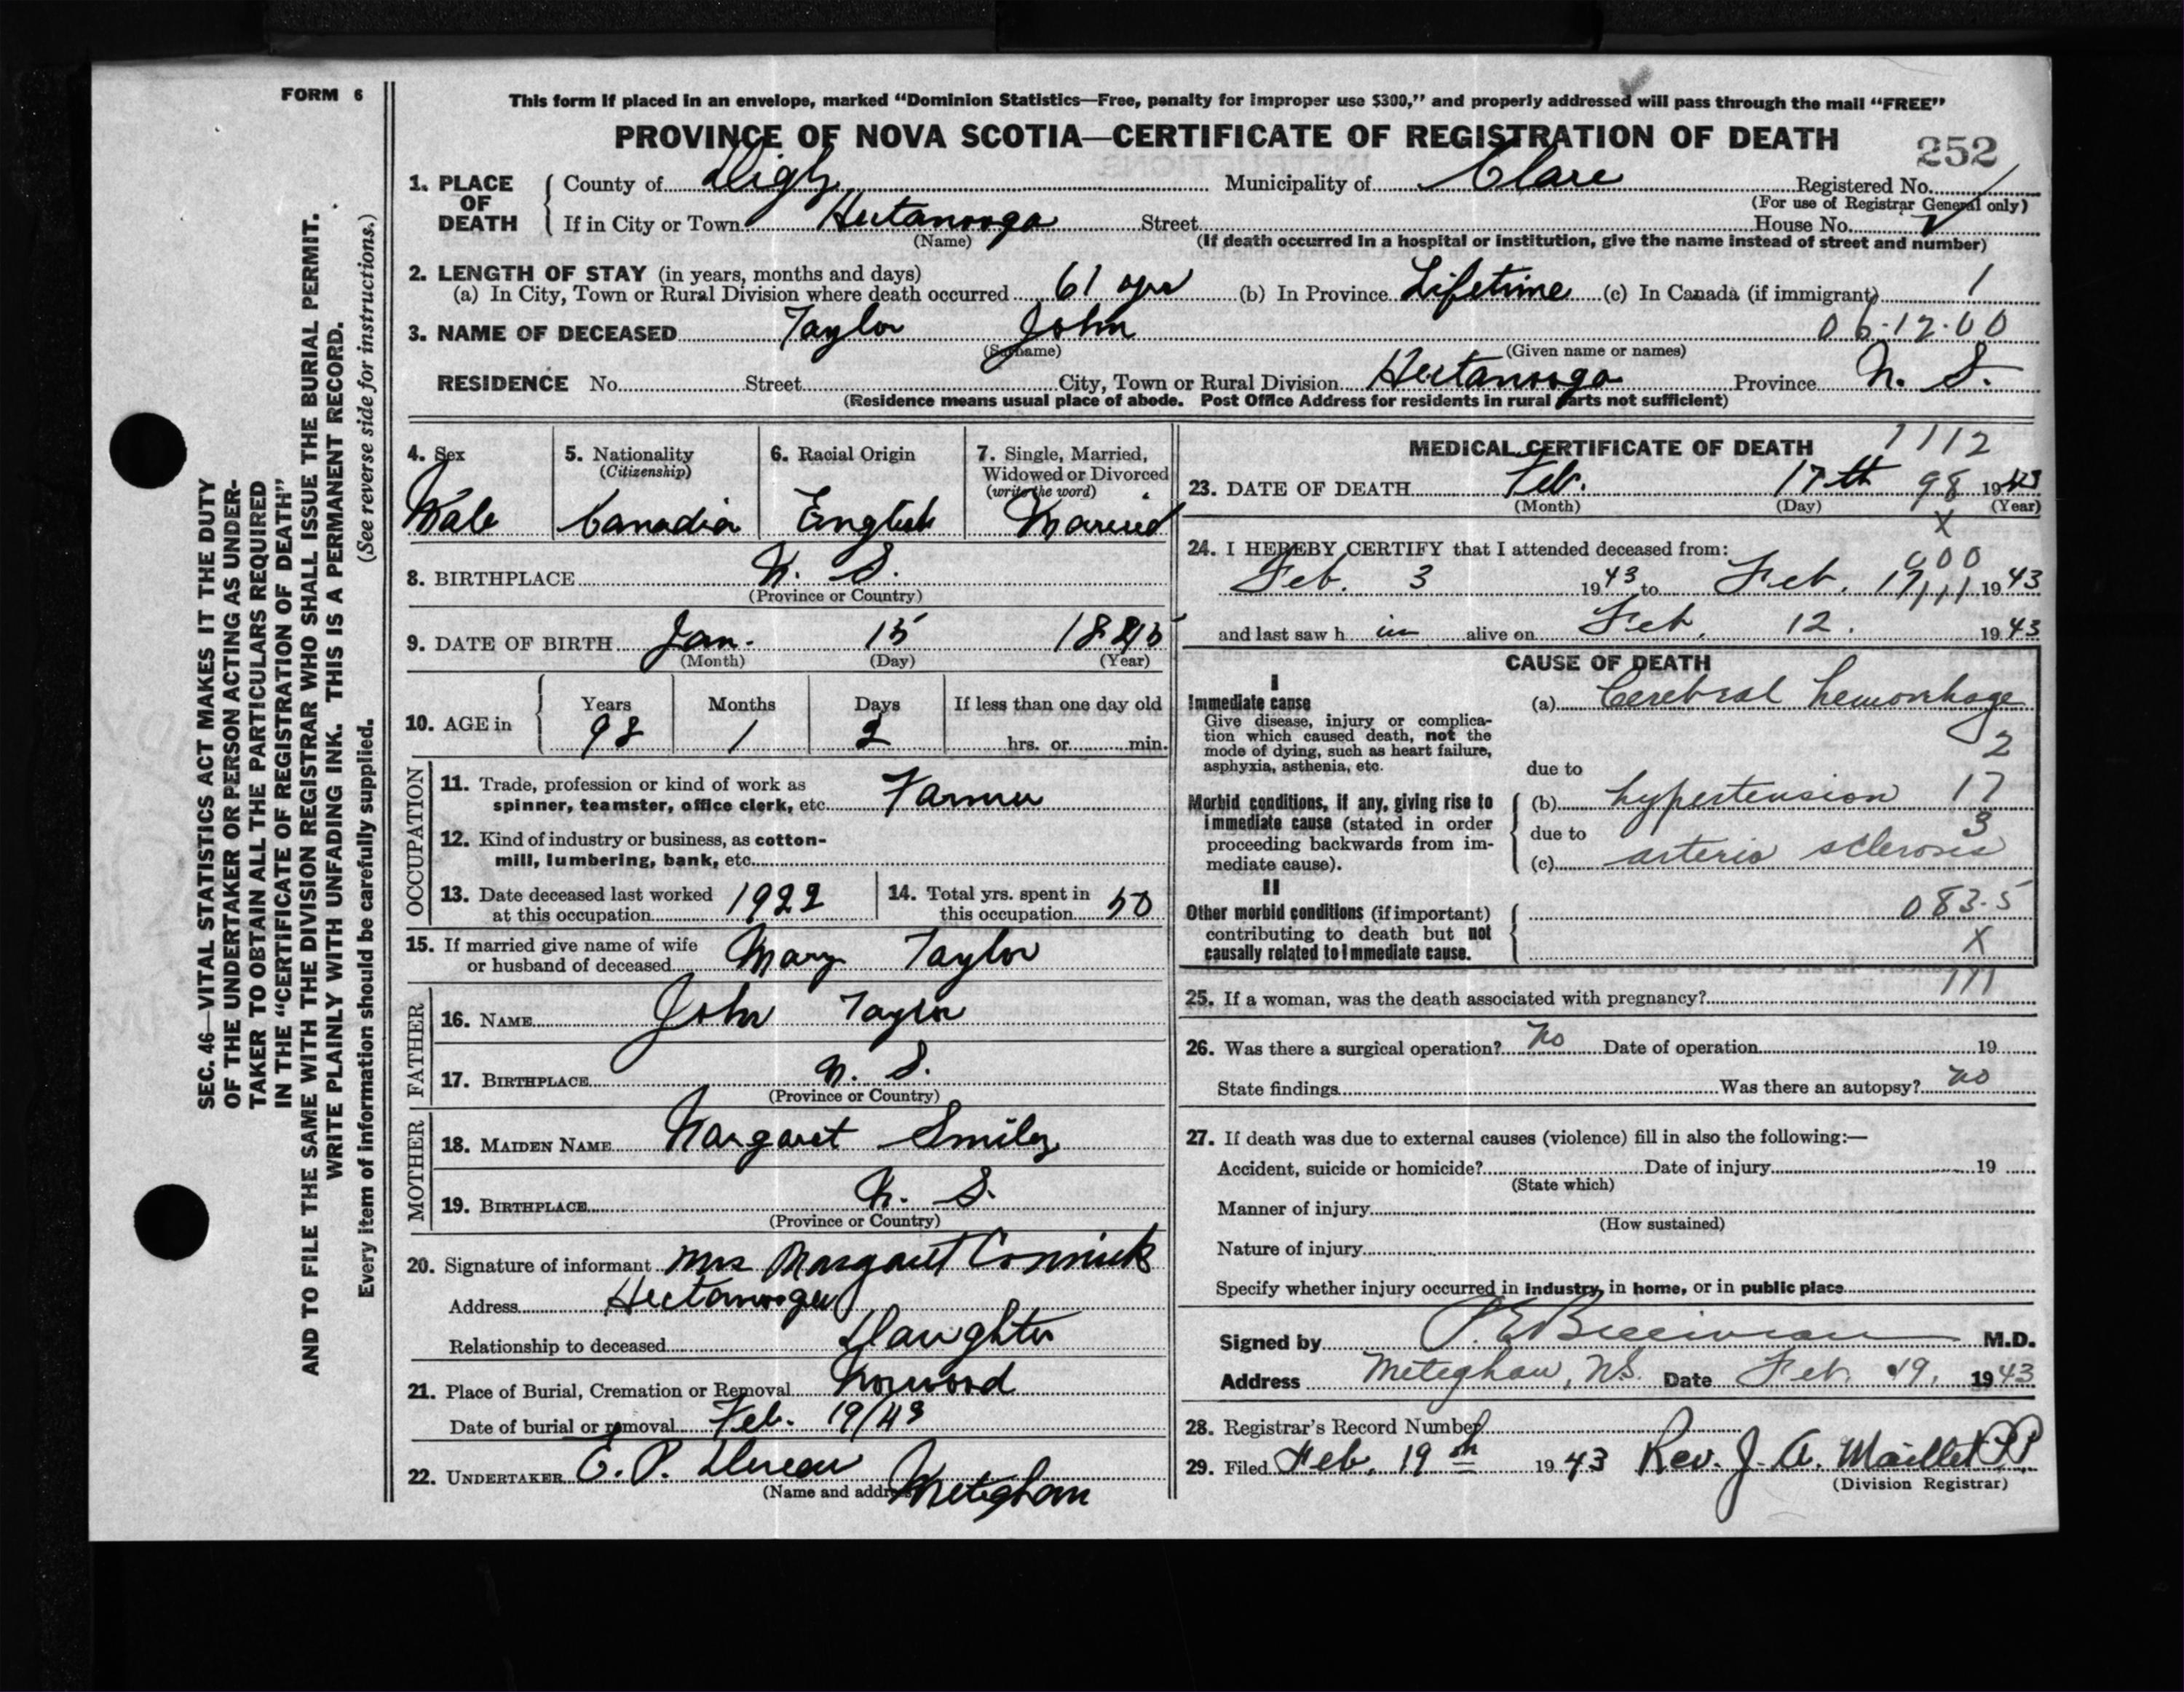 FORM 6
This form if placed in an envelope, marked “Dominion Statistics—Free, penalty for improper use $300,” and properly addressed will pass through the mail “FREE”
PROVINCE OF NOVA SCOTIA—CERTIFICATE OF REGISTRATION OF DEATH
252
1. PLACE OF DEATH
County of Digby Municipality of Clare Registered No.
(For use of Registrar General only)
If in City or Town Hectanooga Street House No.
(Name) (If death occurred in a hospital or institution, give the name instead of street and number)
2. LENGTH OF STAY (in years, months and days)
(a) In City, Town or Rural Division where death occurred 61 yrs (b) In Province Lifetime (c) In Canada (if immigrant) 1
3. NAME OF DECEASED Taylor John 06.12.00
(Surname) (Given name or names)
RESIDENCE No. Street City, Town or Rural Division Hectanooga Province N. S.
(Residence means usual place of abode. Post Office Address for residents in rural parts not sufficient)
4. Sex
Male
5. Nationality
(Citizenship)
Canadia
6. Racial Origin
English
7. Single, Married,
Widowed or Divorced
(write the word)
Married
8. BIRTHPLACE N. S.
(Province or Country)
9. DATE OF BIRTH Jan. 15
(Month) (Day) (Year)
10. AGE in
Years Months Days If less than one day old
98 1 2 hrs. or min.
OCCUPATION
11. Trade, profession or kind of work as
spinner, teamster, office clerk, etc. Farmer
12. Kind of industry or business, as cotton-
mill, lumbering, bank, etc.
13. Date deceased last worked
at this occupation 1922
14. Total yrs. spent in
this occupation 50
15. If married give name of wife
or husband of deceased Mary Taylor
FATHER
16. NAME John Taylor
17. BIRTHPLACE N. S.
(Province or Country)
MOTHER
18. MAIDEN NAME Margaret Smiley
19. BIRTHPLACE N. S.
(Province or Country)
20. Signature of informant Mrs Margaret
Address Hectanooga
Relationship to deceased Daughter
21. Place of Burial, Cremation or Removal Norwood
Date of burial or removal Feb. 19/43
22. UNDERTAKER E. P.
(Name and address) Meteghan
MEDICAL CERTIFICATE OF DEATH
1112
23. DATE OF DEATH Feb. 17th 98 1943
(Month) (Day) (Year)
X
24. I HEREBY CERTIFY that I attended deceased from:
000
Feb. 3 1943 to Feb. 17 1943
and last saw h im alive on Feb. 12. 1943
CAUSE OF DEATH
I
Immediate cause
Give disease, injury or complica-
tion which caused death, not the
mode of dying, such as heart failure,
asphyxia, asthenia, etc.
(a) Cerebral hemorrhage
2
due to
Morbid conditions, if any, giving rise to
immediate cause (stated in order
proceeding backwards from im-
mediate cause).
(b) hypertension 17
due to 3
(c) arterio sclerosis
II
Other morbid conditions (if important)
contributing to death but not
causally related to immediate cause.
083.5
X
111
25. If a woman, was the death associated with pregnancy?
26. Was there a surgical operation? No Date of operation 19
State findings Was there an autopsy? no
27. If death was due to external causes (violence) fill in also the following:—
Accident, suicide or homicide? Date of injury 19
(State which)
Manner of injury
(How sustained)
Nature of injury
Specify whether injury occurred in industry, in home, or in public place
Signed by M.D.
Address Meteghan, N.S. Date Feb. 19, 1943
28. Registrar’s Record Number
29. Filed Feb. 19th 1943 Rev. J. A. Maillet P.P.
(Division Registrar)
SEC. 46—VITAL STATISTICS ACT MAKES IT THE DUTY
OF THE UNDERTAKER OR PERSON ACTING AS UNDER-
TAKER TO OBTAIN ALL THE PARTICULARS REQUIRED
IN THE “CERTIFICATE OF REGISTRATION OF DEATH”
AND TO FILE THE SAME WITH THE DIVISION REGISTRAR WHO SHALL ISSUE THE BURIAL PERMIT.
WRITE PLAINLY WITH UNFADING INK. THIS IS A PERMANENT RECORD.
Every item of information should be carefully supplied. (See reverse side for instructions.)